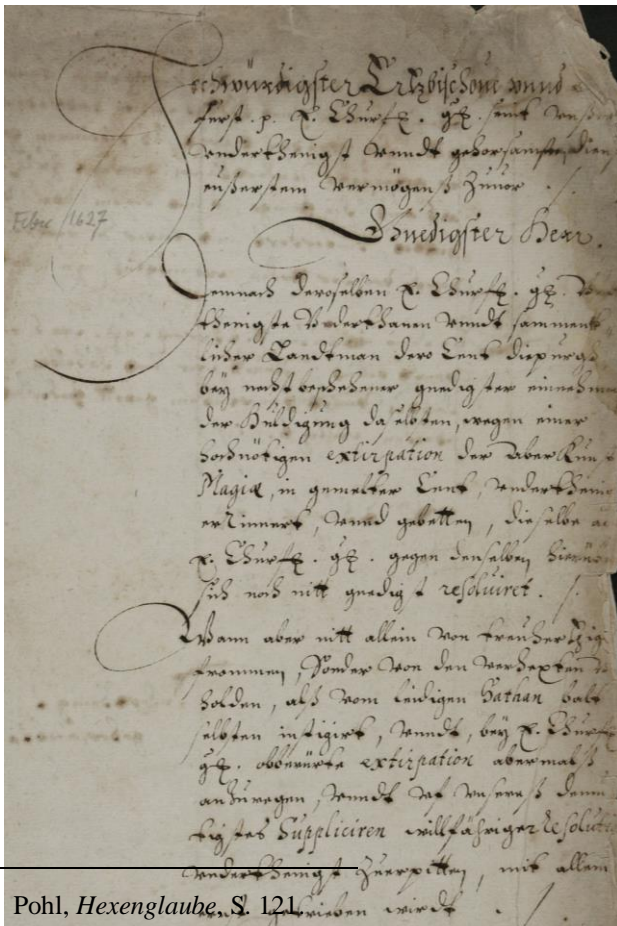 Hochwürdigster Ertzbischoue vnnd
Fürst . p. E. Churf. g. seint vnßer
vnderthenigst vnndt gehorsambste dien
eußerstem vermögenß zuuor . /.
Febr 1627
Gnedigster Herr.
Demnach deroselben E. Churf. g.
thenigste Vnderthanen vnndt samment
licher Landtman dero Cent diepurgh
bey nechst beschehener gnedigster einnehm
der Huldigung daselbten, wegen einer
hochnötigen extirpation der
Magiæ, in gemelter Cent, vnderthenig
erinnert, vnnd gebetten, dieselbe
E. Churf. g. gegen denselben
sich noch nitt gnedigst resoluiret . /.
Wann aber nitt allein von treuhertzig
frommen, Sonder von den verhexten
holden, alß vom leidigen Sathan
selbsten instigirt, vnndt, bey E. Churf
g. obberürte extirpation abermalß
anzuregen, vnndt vf vnsereß demü
tigstes Suppliciren willfähriger Resoluti
vnderthenigst zuerpitten, mit allem
getrieben wirdt . /
Pohl, Hexenglaube, S. 121